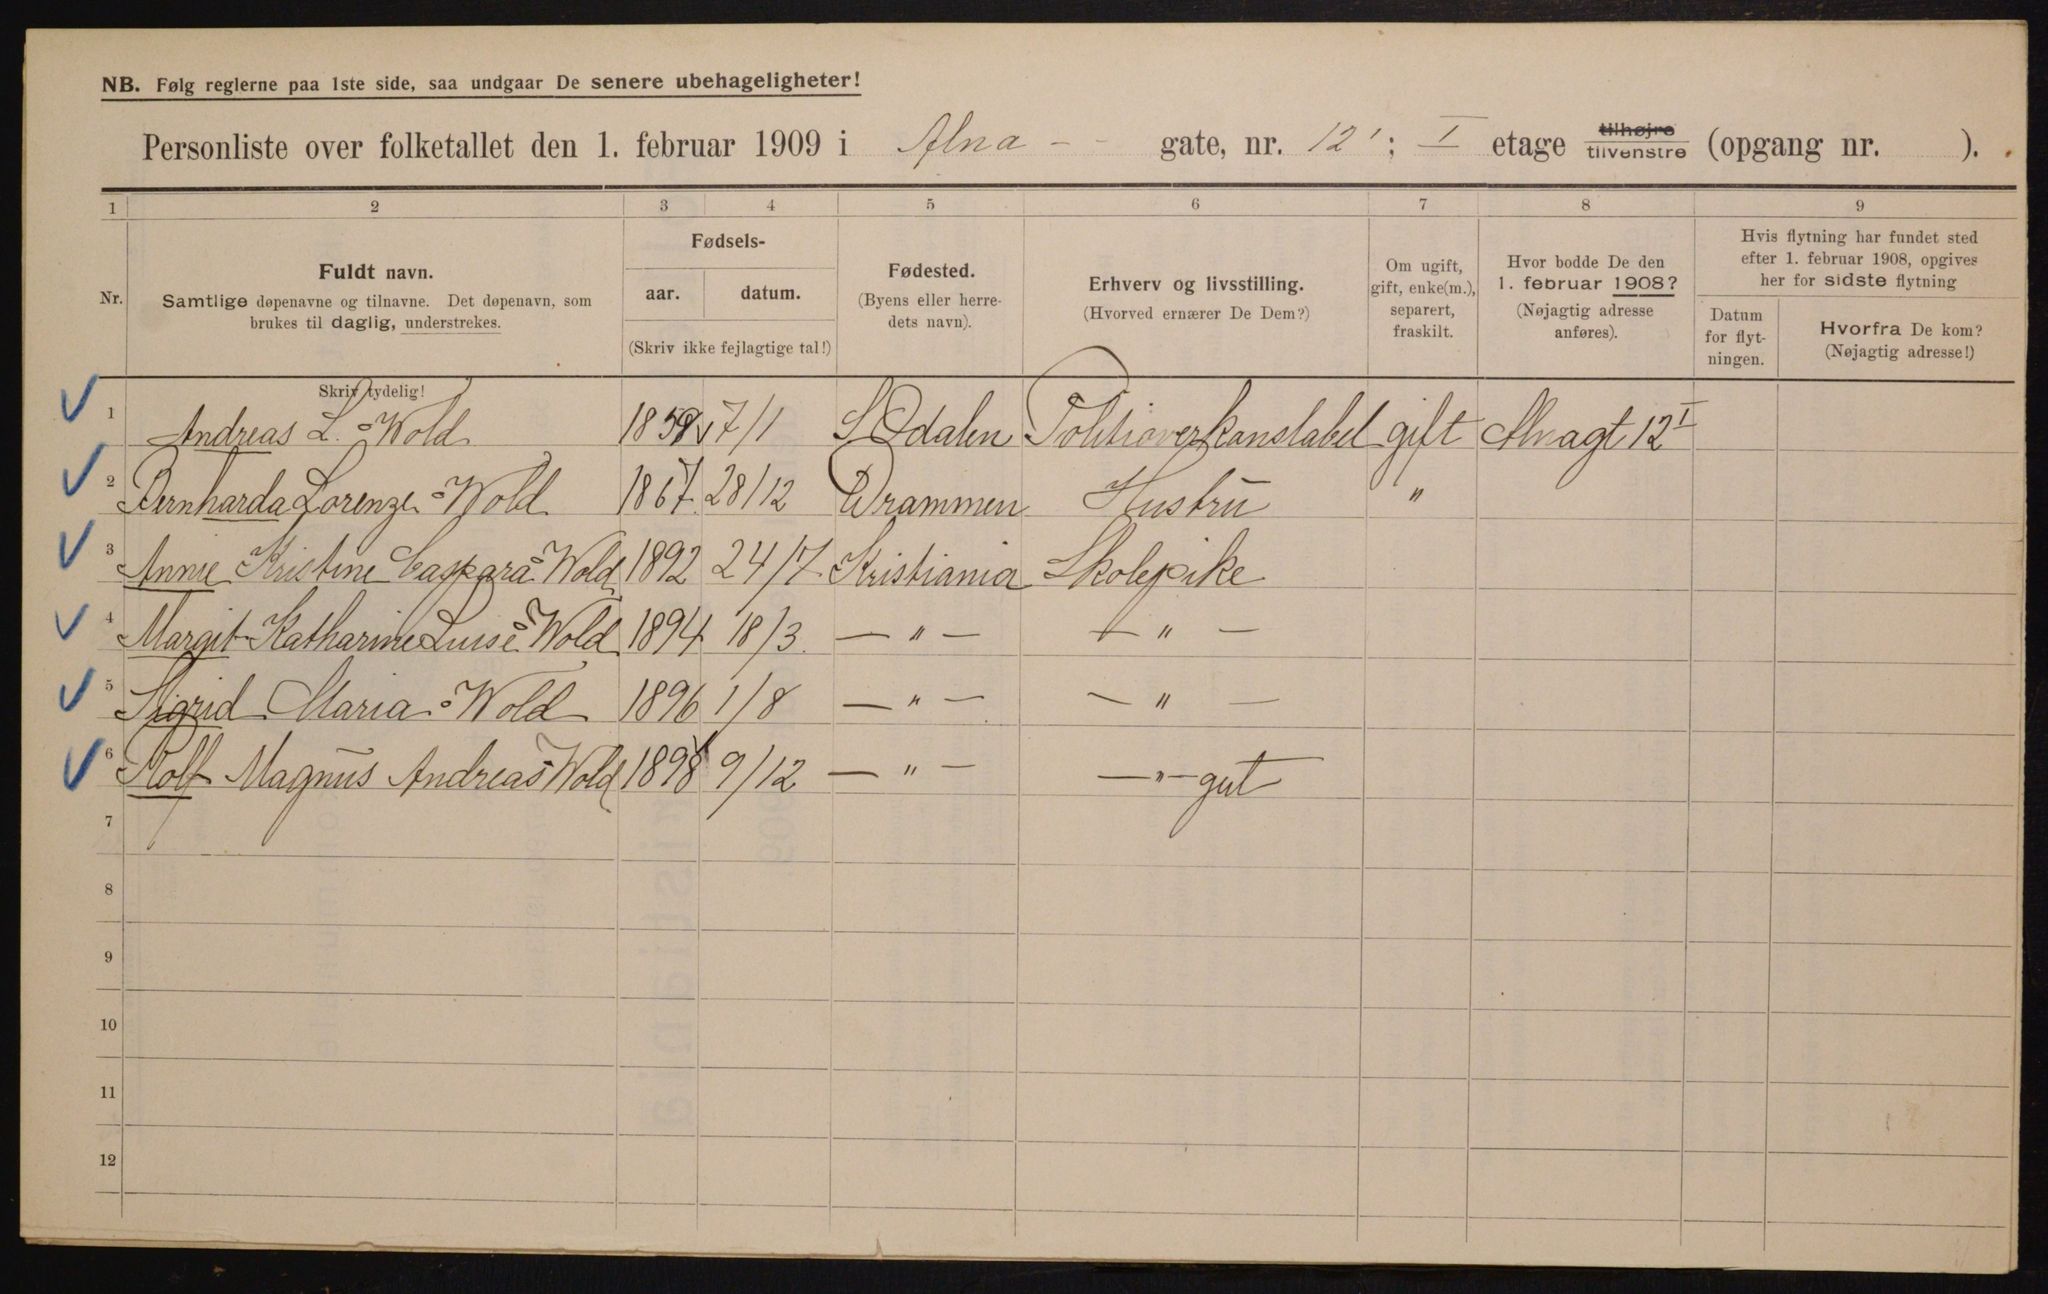 NB. Følg reglerne paa 1ste side, saa undgaar De senere ubehageligheter!
Personliste over folketallet den 1. februar 1909 i Alna - - gate, nr. 12'; I etage tilhøjre tilvenstre (opgang nr. ).
1 2 3 4 5 6 7 8 9
Nr.
Fuldt navn.
Samtlige døpenavne og tilnavne. Det døpenavn, som
brukes til daglig, understrekes.
Fødsels-
aar. datum.
(Skriv ikke fejlagtige tal!)
Fødested.
(Byens eller herre-
dets navn).
Erhverv og livsstilling.
(Hvorved ernærer De Dem?)
Om ugift,
gift, enke(m.),
separert,
fraskilt.
Hvor bodde De den
1. februar 1908?
(Nøjagtig adresse
anføres).
Hvis flytning har fundet sted
efter 1. februar 1908, opgives
her for sidste flytning
Datum
for flyt-
ningen.
Hvorfra De kom?
(Nøjagtig adresse!)
Skriv tydelig!
1 Andreas L. Wold 7/1 S Odalen Politioverkonstabel gift Alnagt 12 I
2 Bernharda Lorenze Wold 1867 28/12 Drammen Hustru "
3 Annie Kristine Caspara Wold 1892 24/7 Kristiania Skolepike
4 Margit Katharine Luise Wold 1894 18/3 — " — — " —
5 Sigrid Maria Wold 1896 1/8 — " — — " —
6 Rolf Magnus Andreas Wold 1898 9/12 — " — — " — gut
7
8
9
10
11
12